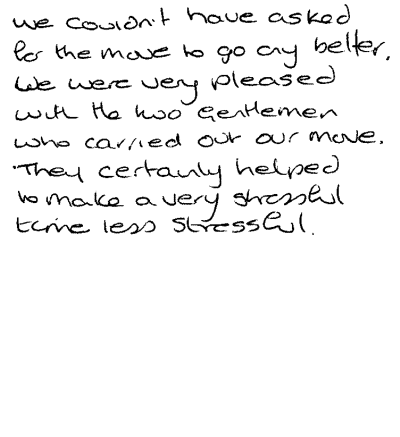 We couldn't have asked
for the move to go any better.
We were very pleased
with the two Gentlemen
who carried out our move.
They certainly helped
to make a very stressful
time less stressful.